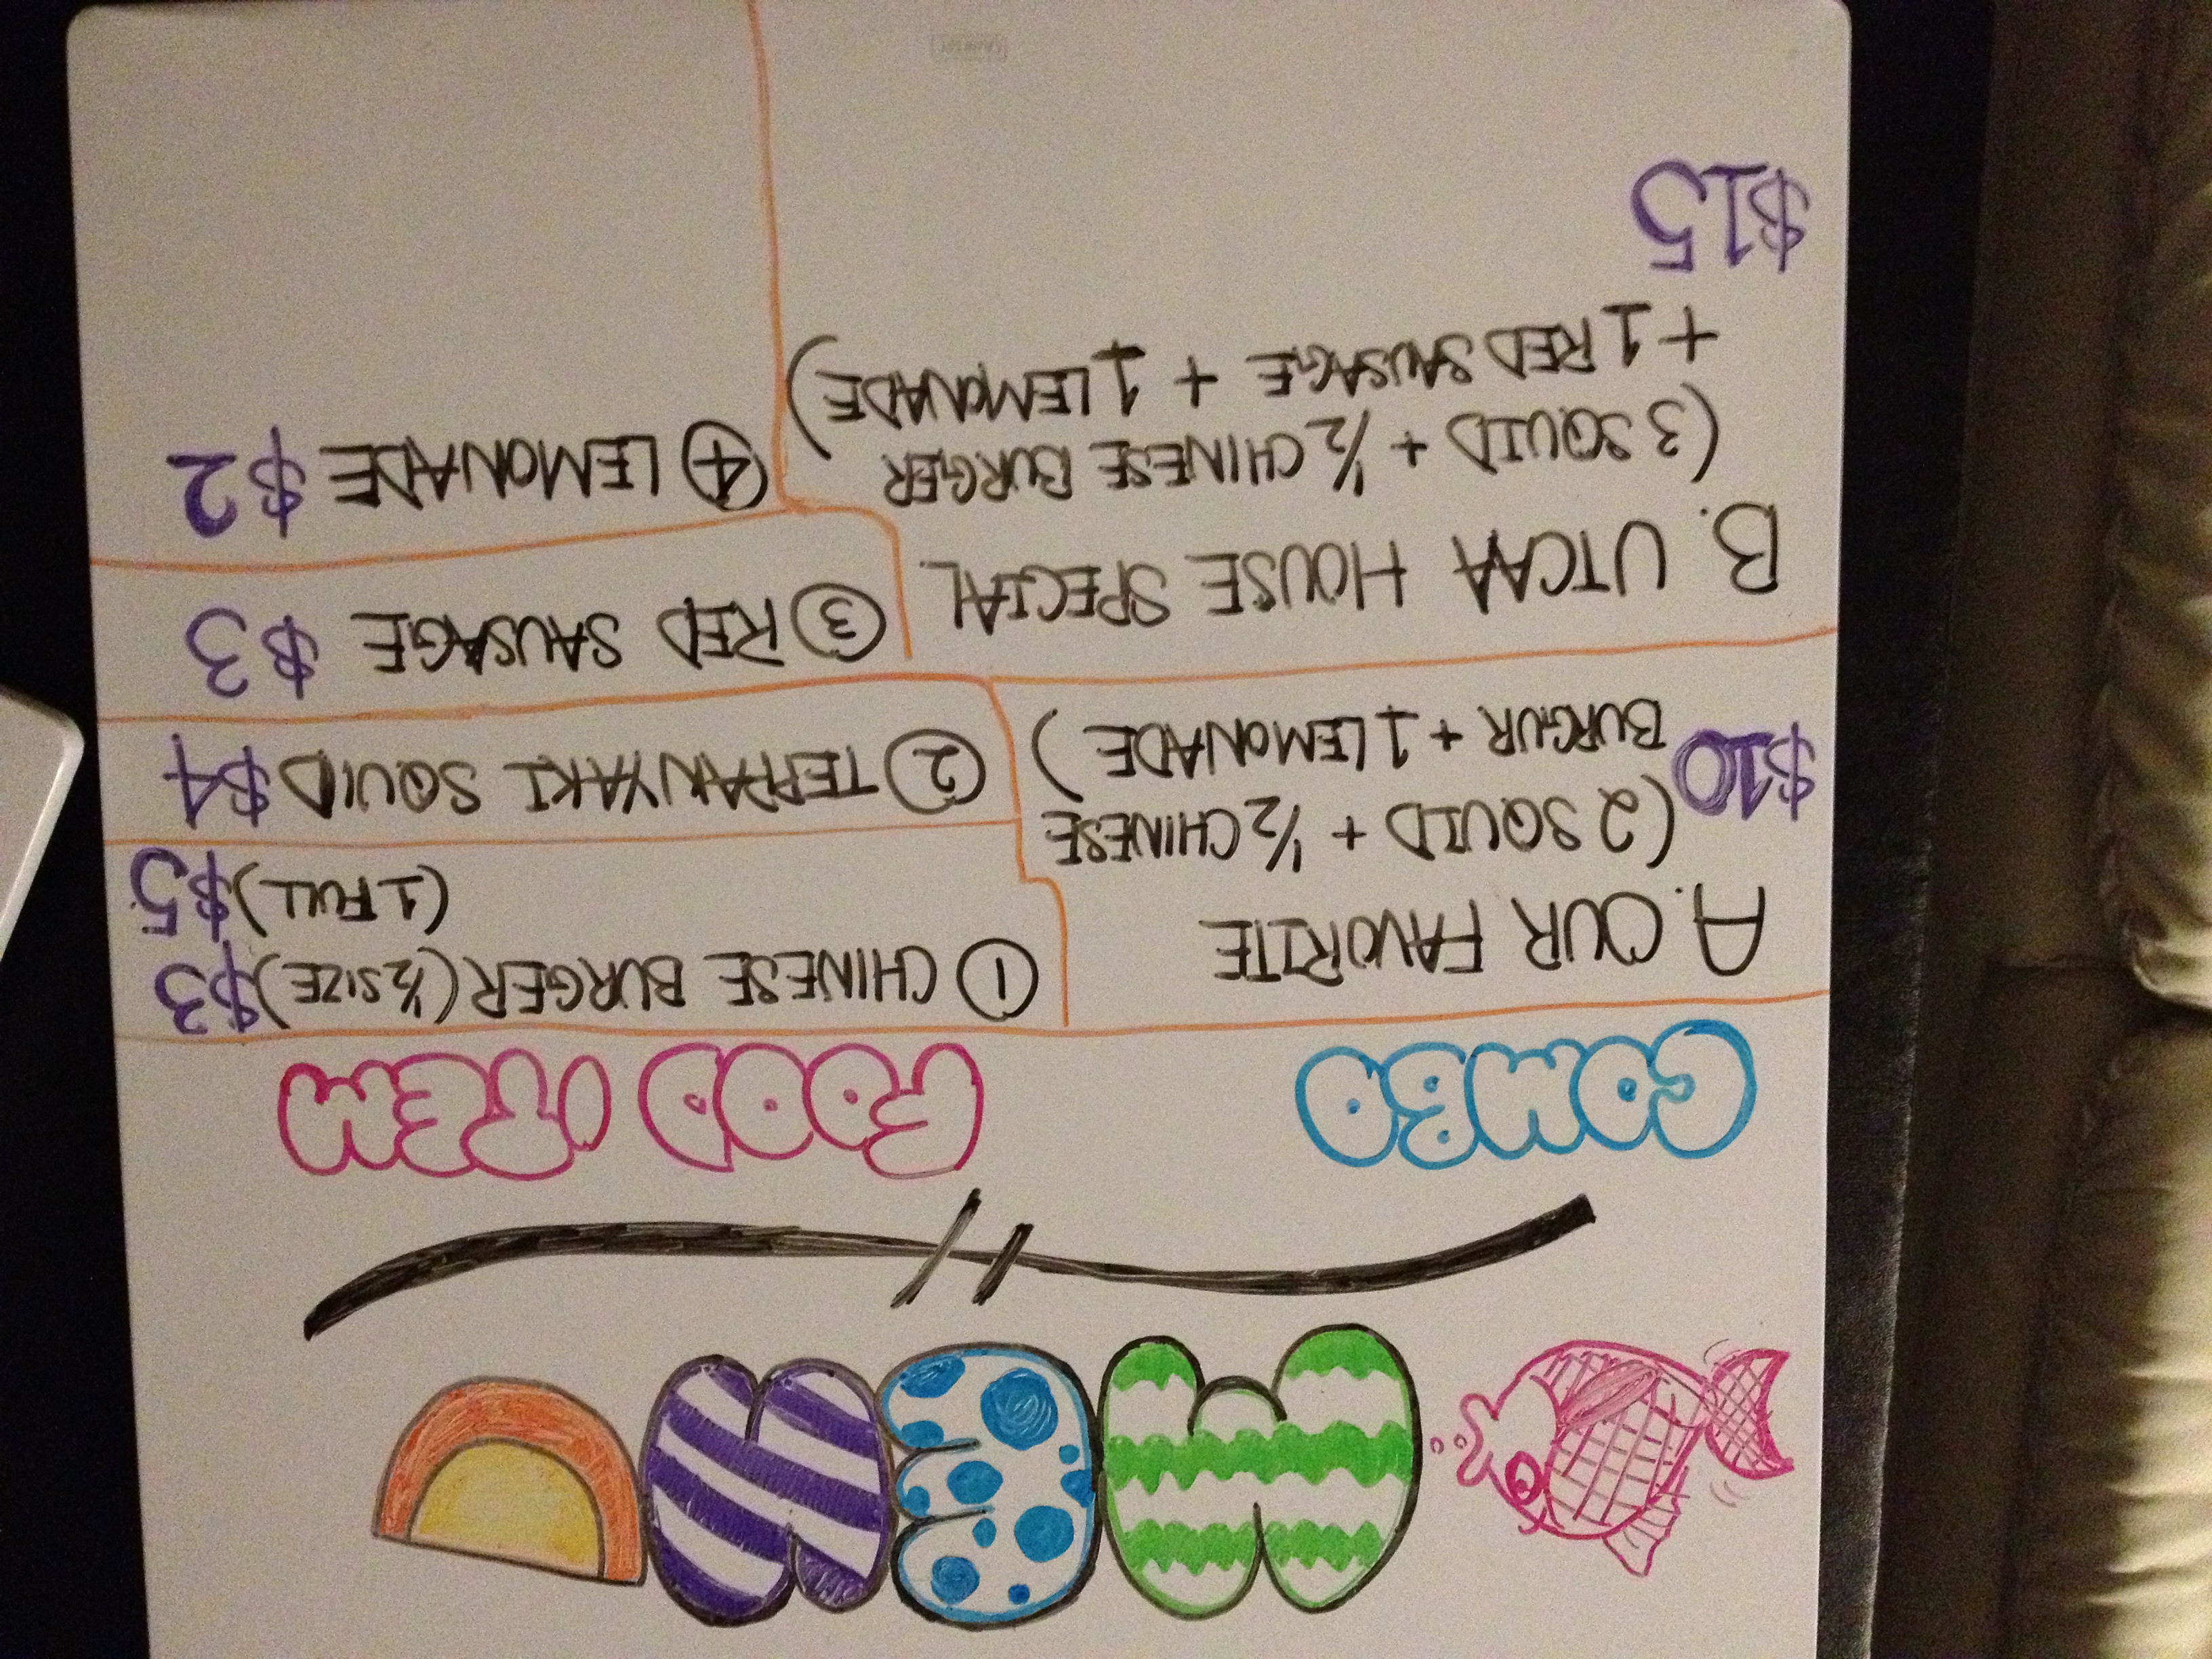 MENU
COMBO
A. OUR FAVORITE
(2 SQUID + 1/2 CHINESE
BURGUR + 1 LEMONADE)
$10
B. UTCAA HOUSE SPECIAL
(3 SQUID + 1/2 CHINESE BURGER
+ 1 RED SAUSAGE + 1 LEMONADE)
$15
FOOD ITEM
① CHINESE BURGER (1/2 SIZE) $3
(1 FULL) $5
② TEPPANYAKI SQUID $4
③ RED SAUSAGE $3
④ LEMONADE $2